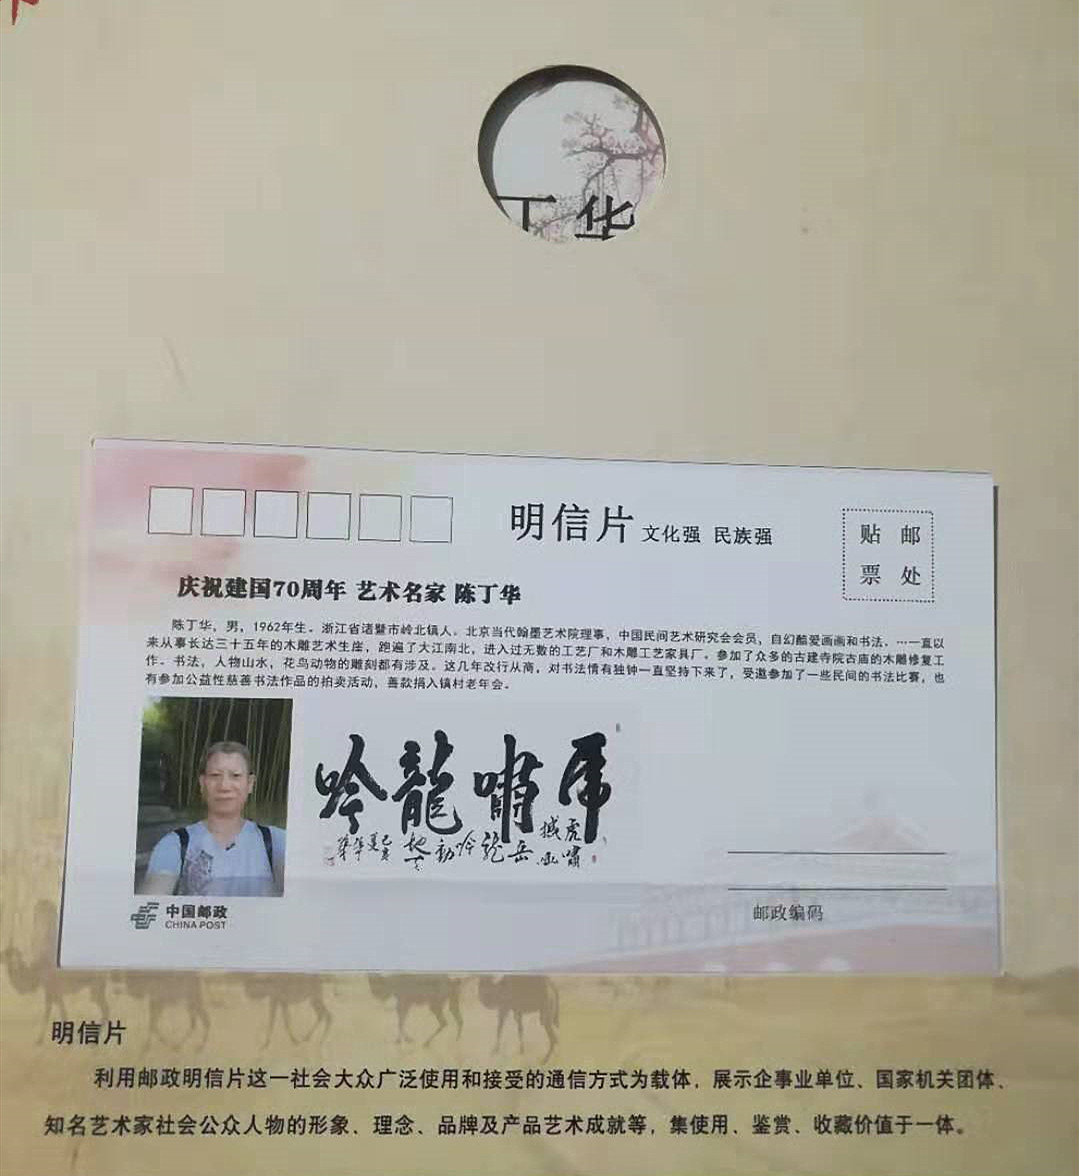 丁华
明信片 文化强 民族强
贴 邮
票 处
庆祝建国70周年 艺术名家 陈丁华
陈丁华，男，1962年生。浙江省诸暨市岭北镇人。北京当代翰墨艺术院理事，中国民间艺术研究会会员，自幻酷爱画画和书法、…一直以
来从事长达三十五年的木雕艺术生岸，跑遍了大江南北，进入过无数的工艺厂和木雕工艺家具厂。参加了众多的古建寺院古庙的木雕修复工
作。书法，人物山水，花鸟动物的雕刻都有涉及。这几年改行从商，对书法情有独钟一直坚持下来了，受邀参加了一些民间的书法比赛，也
有参加公益性慈善书法作品的拍卖活动，善款捐入镇村老年会。
吟龍嘯虎
虎嘯
撼山
岳
龙
吟
动
地
己亥夏
中国邮政
CHINA POST
邮政编码
明信片
利用邮政明信片这一社会大众广泛使用和接受的通信方式为载体，展示企事业单位、国家机关团体、
知名艺术家社会公众人物的形象、理念、品牌及产品艺术成就等，集使用、鉴赏、收藏价值于一体。